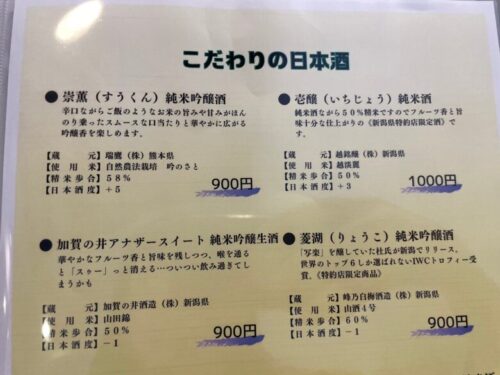 こだわりの日本酒
● 崇薫（すうくん）純米吟醸酒
辛口ながらご飯のようなお米の旨みや甘みがほん
のり乗ったスムースな口当たりと華やかに広がる
吟醸香を楽しめます。
【蔵　元】瑞鷹（株）熊本県
【使 用 米】自然農法栽培　吟のさと
【精米歩合】58%
【日本酒度】+5
900円
● 壱醸（いちじょう）純米酒
純米酒ながら50%精米ですのでフルーツ香と旨
味十分な仕上がりの《新潟県特約店限定酒》で
す。
【蔵　元】越銘醸（株）新潟県
【使 用 米】越淡麗
【精米歩合】50%
【日本酒度】+3
1000円
● 加賀の井アナザースイート 純米吟醸生酒
華やかなフルーツ香と旨味を残しつつ、喉を通る
と「スゥー」っと消える…ついつい飲み過ぎてし
まうかも
【蔵　元】加賀の井酒造（株）新潟県
【使 用 米】山田錦
【精米歩合】50%
【日本酒度】−1
900円
● 菱湖（りょうこ）純米吟醸酒
「写楽」を醸していた杜氏が新潟でリリース。
世界のトップ6しか選ばれないIWCトロフィー受
賞、《特約店限定商品》
【蔵　元】峰乃白梅酒造（株）新潟県
【使 用 米】山酒4号
【精米歩合】60%
【日本酒度】−1
900円